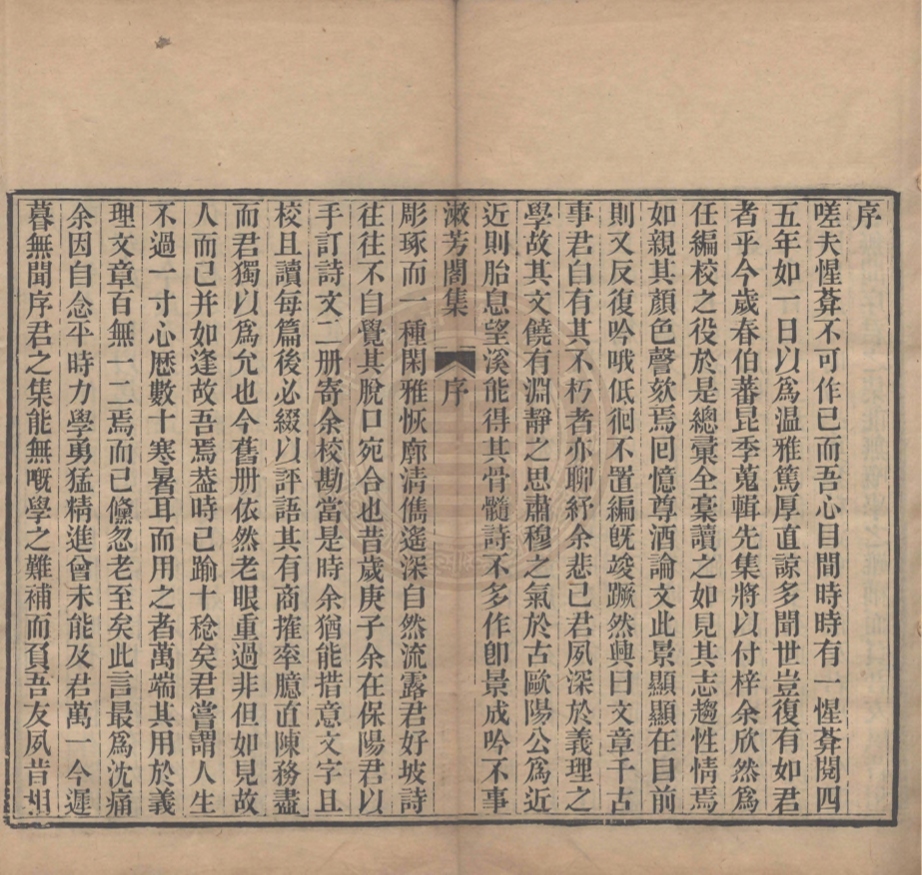 序
嗟夫惺葊不可作已而吾心目間時時有一惺葊閱四
五年如一日以爲温雅篤厚直諒多聞世豈復有如君
者乎今歲春伯蕃昆季蒐輯先集將以付梓余欣然爲
任編校之役於是總彚全稾讀之如見其志趨性情焉
如親其顏色謦欬焉囘憶尊酒論文此景顯顯在目前
則又反復吟哦低徊不置編旣竣蹶然興曰文章千古
事君自有其不朽者亦聊紓余悲已君夙深於義理之
學故其文饒有淵靜之思肅穆之氣於古歐陽公爲近
近則胎息望溪能得其骨髓詩不多作卽景成吟不事
漱芳閣集 序
彫琢而一種閑雅恢廓清儁遙深自然流露君好坡詩
往往不自覺其脫口宛合也昔歲庚子余在保陽君以
手訂詩文二册寄余校勘當是時余猶能措意文字且
校且讀每篇後必綴以評語其有商搉率臆直陳務盡
而君獨以爲允也今舊册依然老眼重過非但如見故
人而已并如逢故吾焉葢時已踰十稔矣君嘗謂人生
不過一寸心歷數十寒暑耳而用之者萬端其用於義
理文章百無一二焉而已儵忽老至矣此言最爲沈痛
余因自念平時力學勇猛精進曾未能及君萬一今遲
暮無聞序君之集能無嘅學之難補而負吾友夙昔相